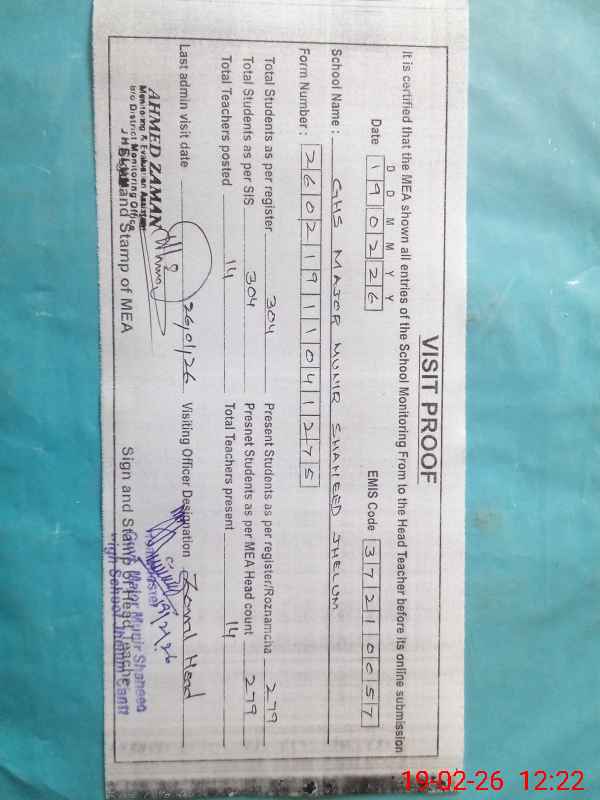 VISIT PROOF
It is certified that the MEA shown all entries of the School Monitoring From to the Head Teacher before its online submission
D D M M Y Y
Date 190226 EMIS Code 37210057
School Name : GHS MAJOR MUNIR SHAHEED JHELUM
Form Number : 26021911041275
Total Students as per register 304 Present Students as per register/Roznamcha 279
Total Students as per SIS 304 Presnet Students as per MEA Head count 279
Total Teachers posted 14 Total Teachers present 14
Last admin visit date 26/01/26 Visiting Officer Designation Zonal Head
AHMED ZAMAN
Monitoring & Evaluation Assistant
District Monitoring Office
JHELUM
Sign and Stamp of MEA Sign and Stamp of Head Teacher
Headmaster
Govt. Major Munir Shaheed
High School Jhelum Cantt
19-02-26 12:22